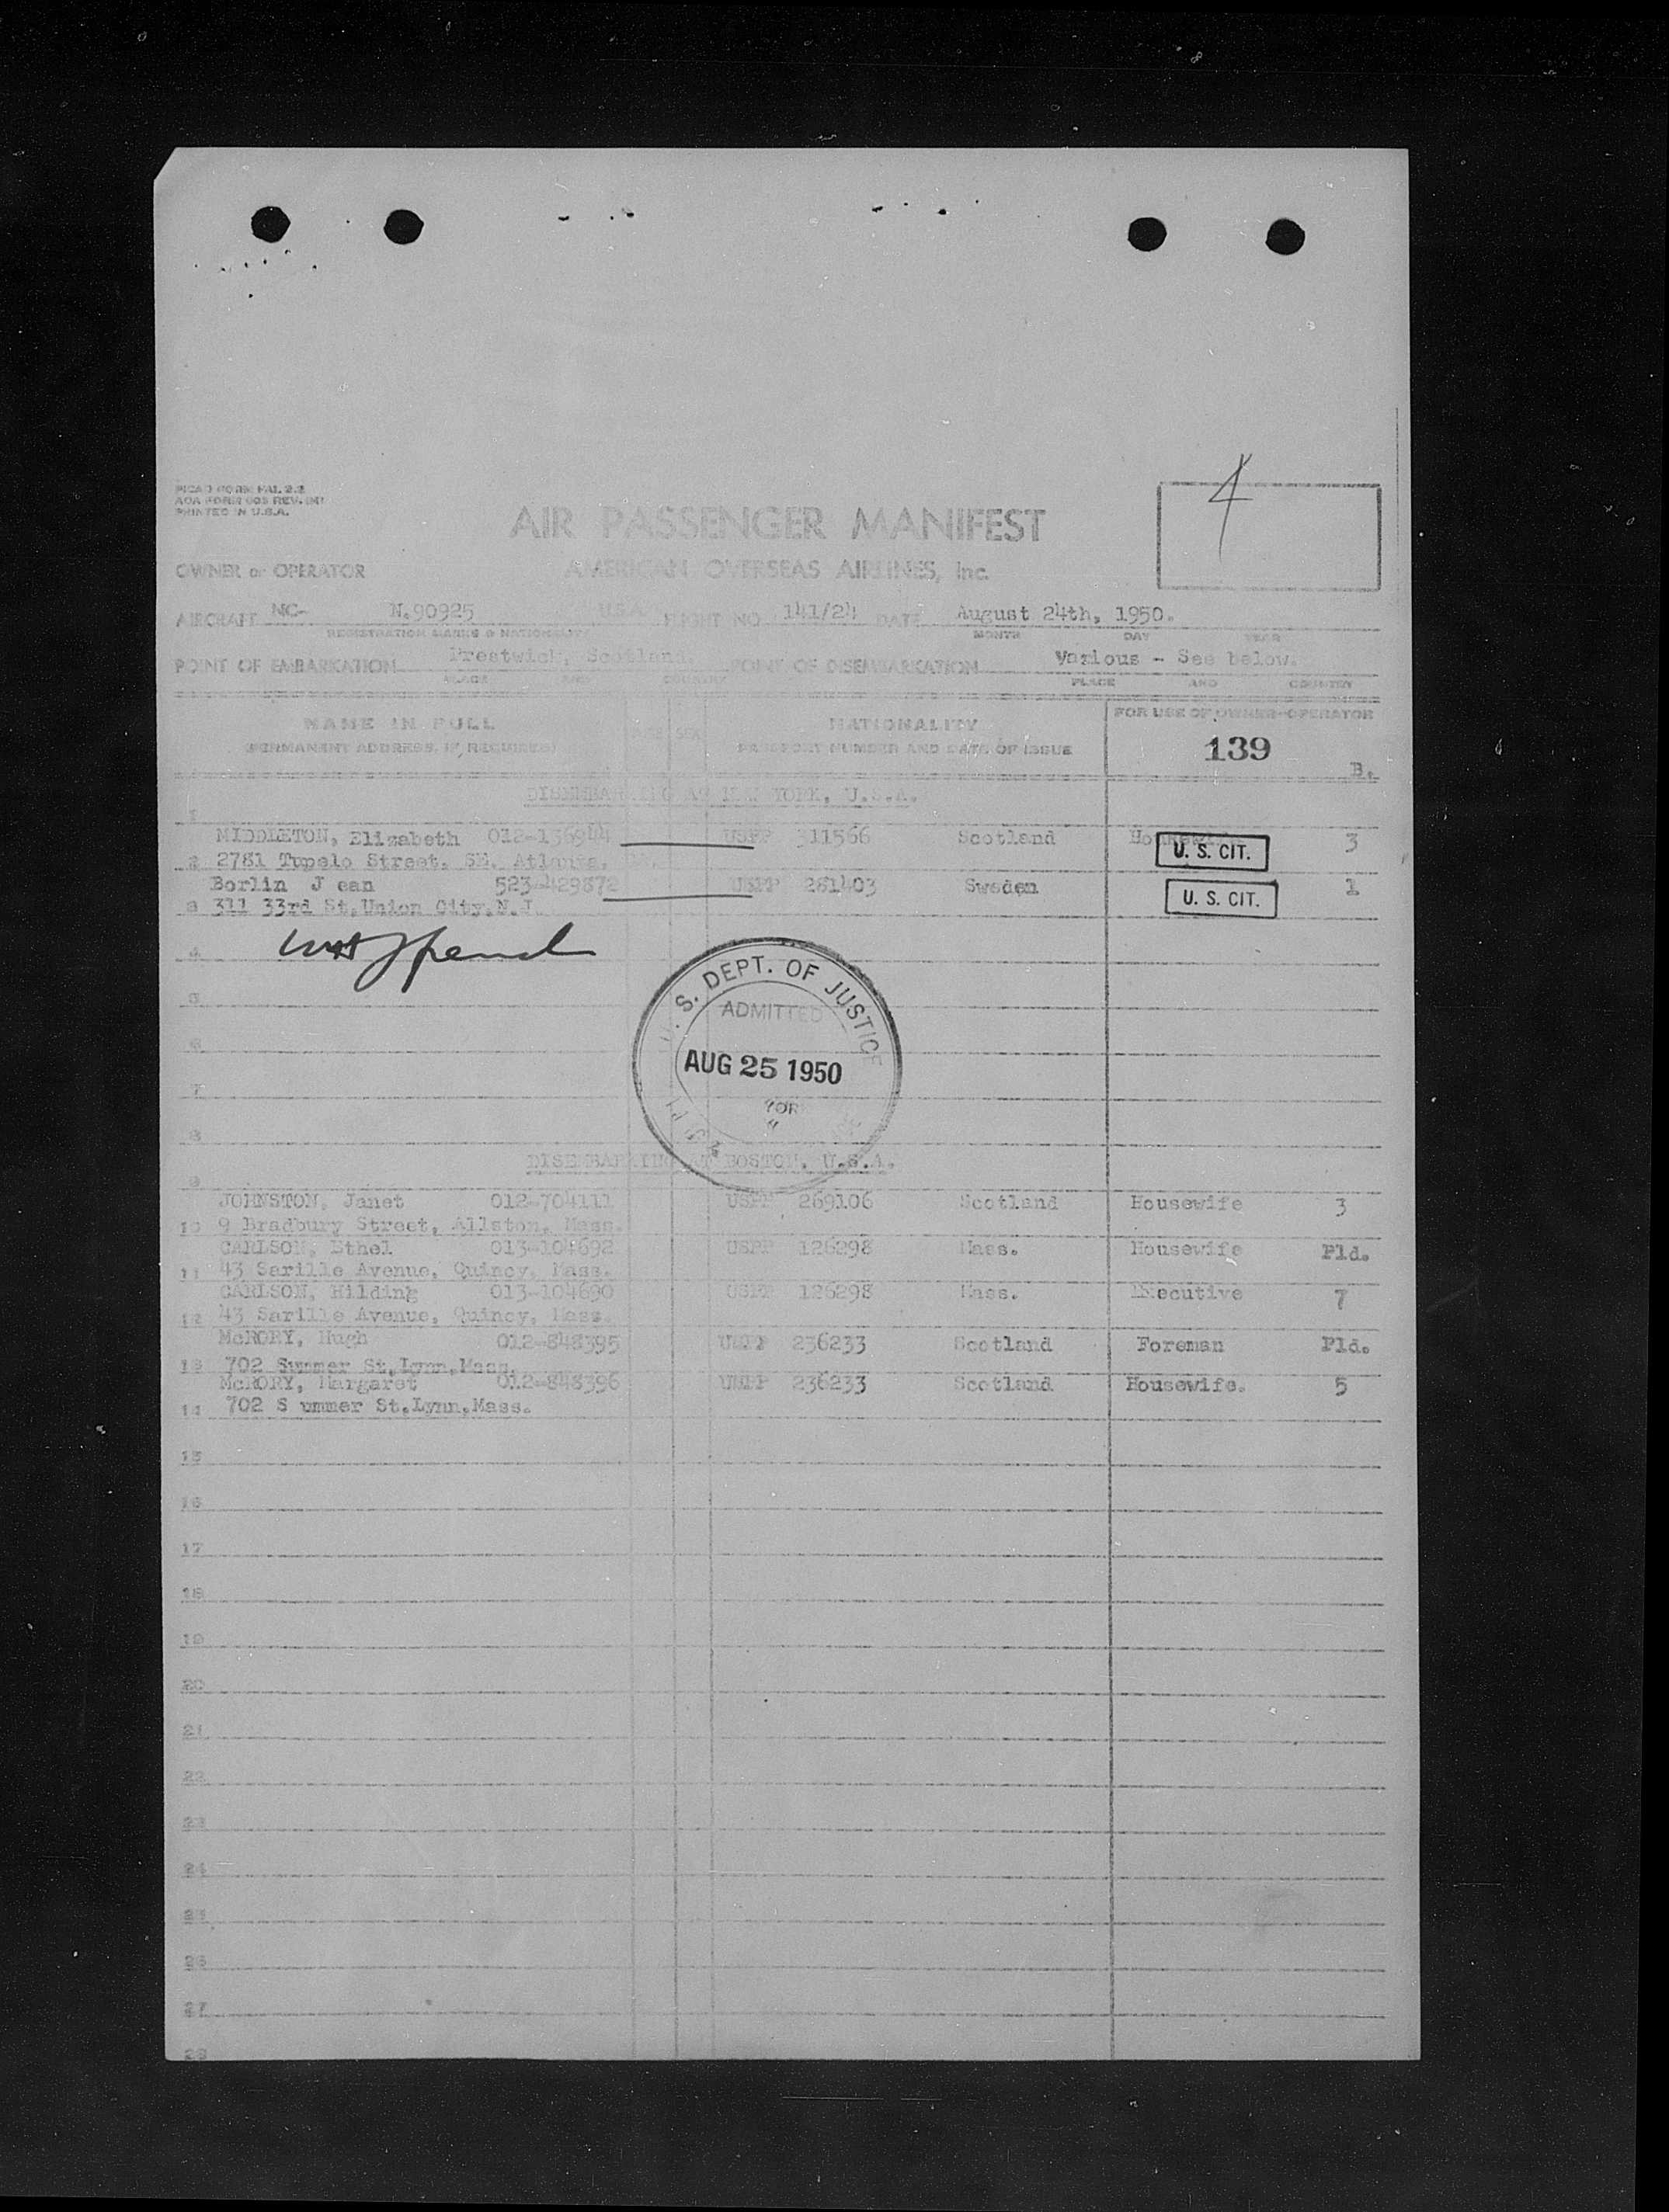 4
PICAO FORM PAL 2.2
AOA FORM 003 REV. (M)
PRINTED IN U.S.A.
AIR PASSENGER MANIFEST
OWNER or OPERATOR AMERICAN OVERSEAS AIRLINES, Inc.
AIRCRAFT NC- N.90925 U.S.A. FLIGHT NO. 141/24 DATE August 24th, 1950.
REGISTRATION MARKS & NATIONALITY MONTH DAY YEAR
POINT OF EMBARKATION Prestwick, Scotland. POINT OF DISEMBARKATION Various - See below.
PLACE AND COUNTRY PLACE AND COUNTRY
NAME IN FULL AGE SEX NATIONALITY FOR USE OF OWNER-OPERATOR
(PERMANENT ADDRESS, IF REQUIRED) PASSPORT NUMBER AND DATE OF ISSUE 139 B.
DISEMBARKING AT NEW YORK, U.S.A.
1
MIDDLETON, Elizabeth 012-136944 USPP 311566 Scotland U. S. CIT. 3
2 2781 Tupelo Street, SE. Atlanta, GA.
Borlin J ean 523-429872 USPP 281403 Sweden U. S. CIT. 1
3 311 33rd St,Union City,N.J.
4
5
6
7
8
U. S. DEPT. OF JUSTICE
ADMITTED
AUG 25 1950
DISEMBARKING AT BOSTON, U.S.A.
9
JOHNSTON, Janet 012-704111 USPP 269106 Scotland Housewife 3
10 9 Bradbury Street, Allston, Mass.
CARLSON, Ethel 013-104692 USPP 126298 Mass. Housewife Pld.
11 43 Sarille Avenue, Quincy, Mass.
CARLSON, Hilding 013-104690 USPP 126298 Mass. Executive 7
12 43 Sarille Avenue, Quincy, Mass.
McRORY, Hugh 012-848395 USPP 236233 Scotland Foreman Pld.
13 702 Summer St,Lynn,Mass.
McRORY, Margaret 012-848396 USPP 236233 Scotland Housewife. 5
14 702 S ummer St.Lynn,Mass.
15
16
17
18
19
20
21
22
23
24
25
26
27
28